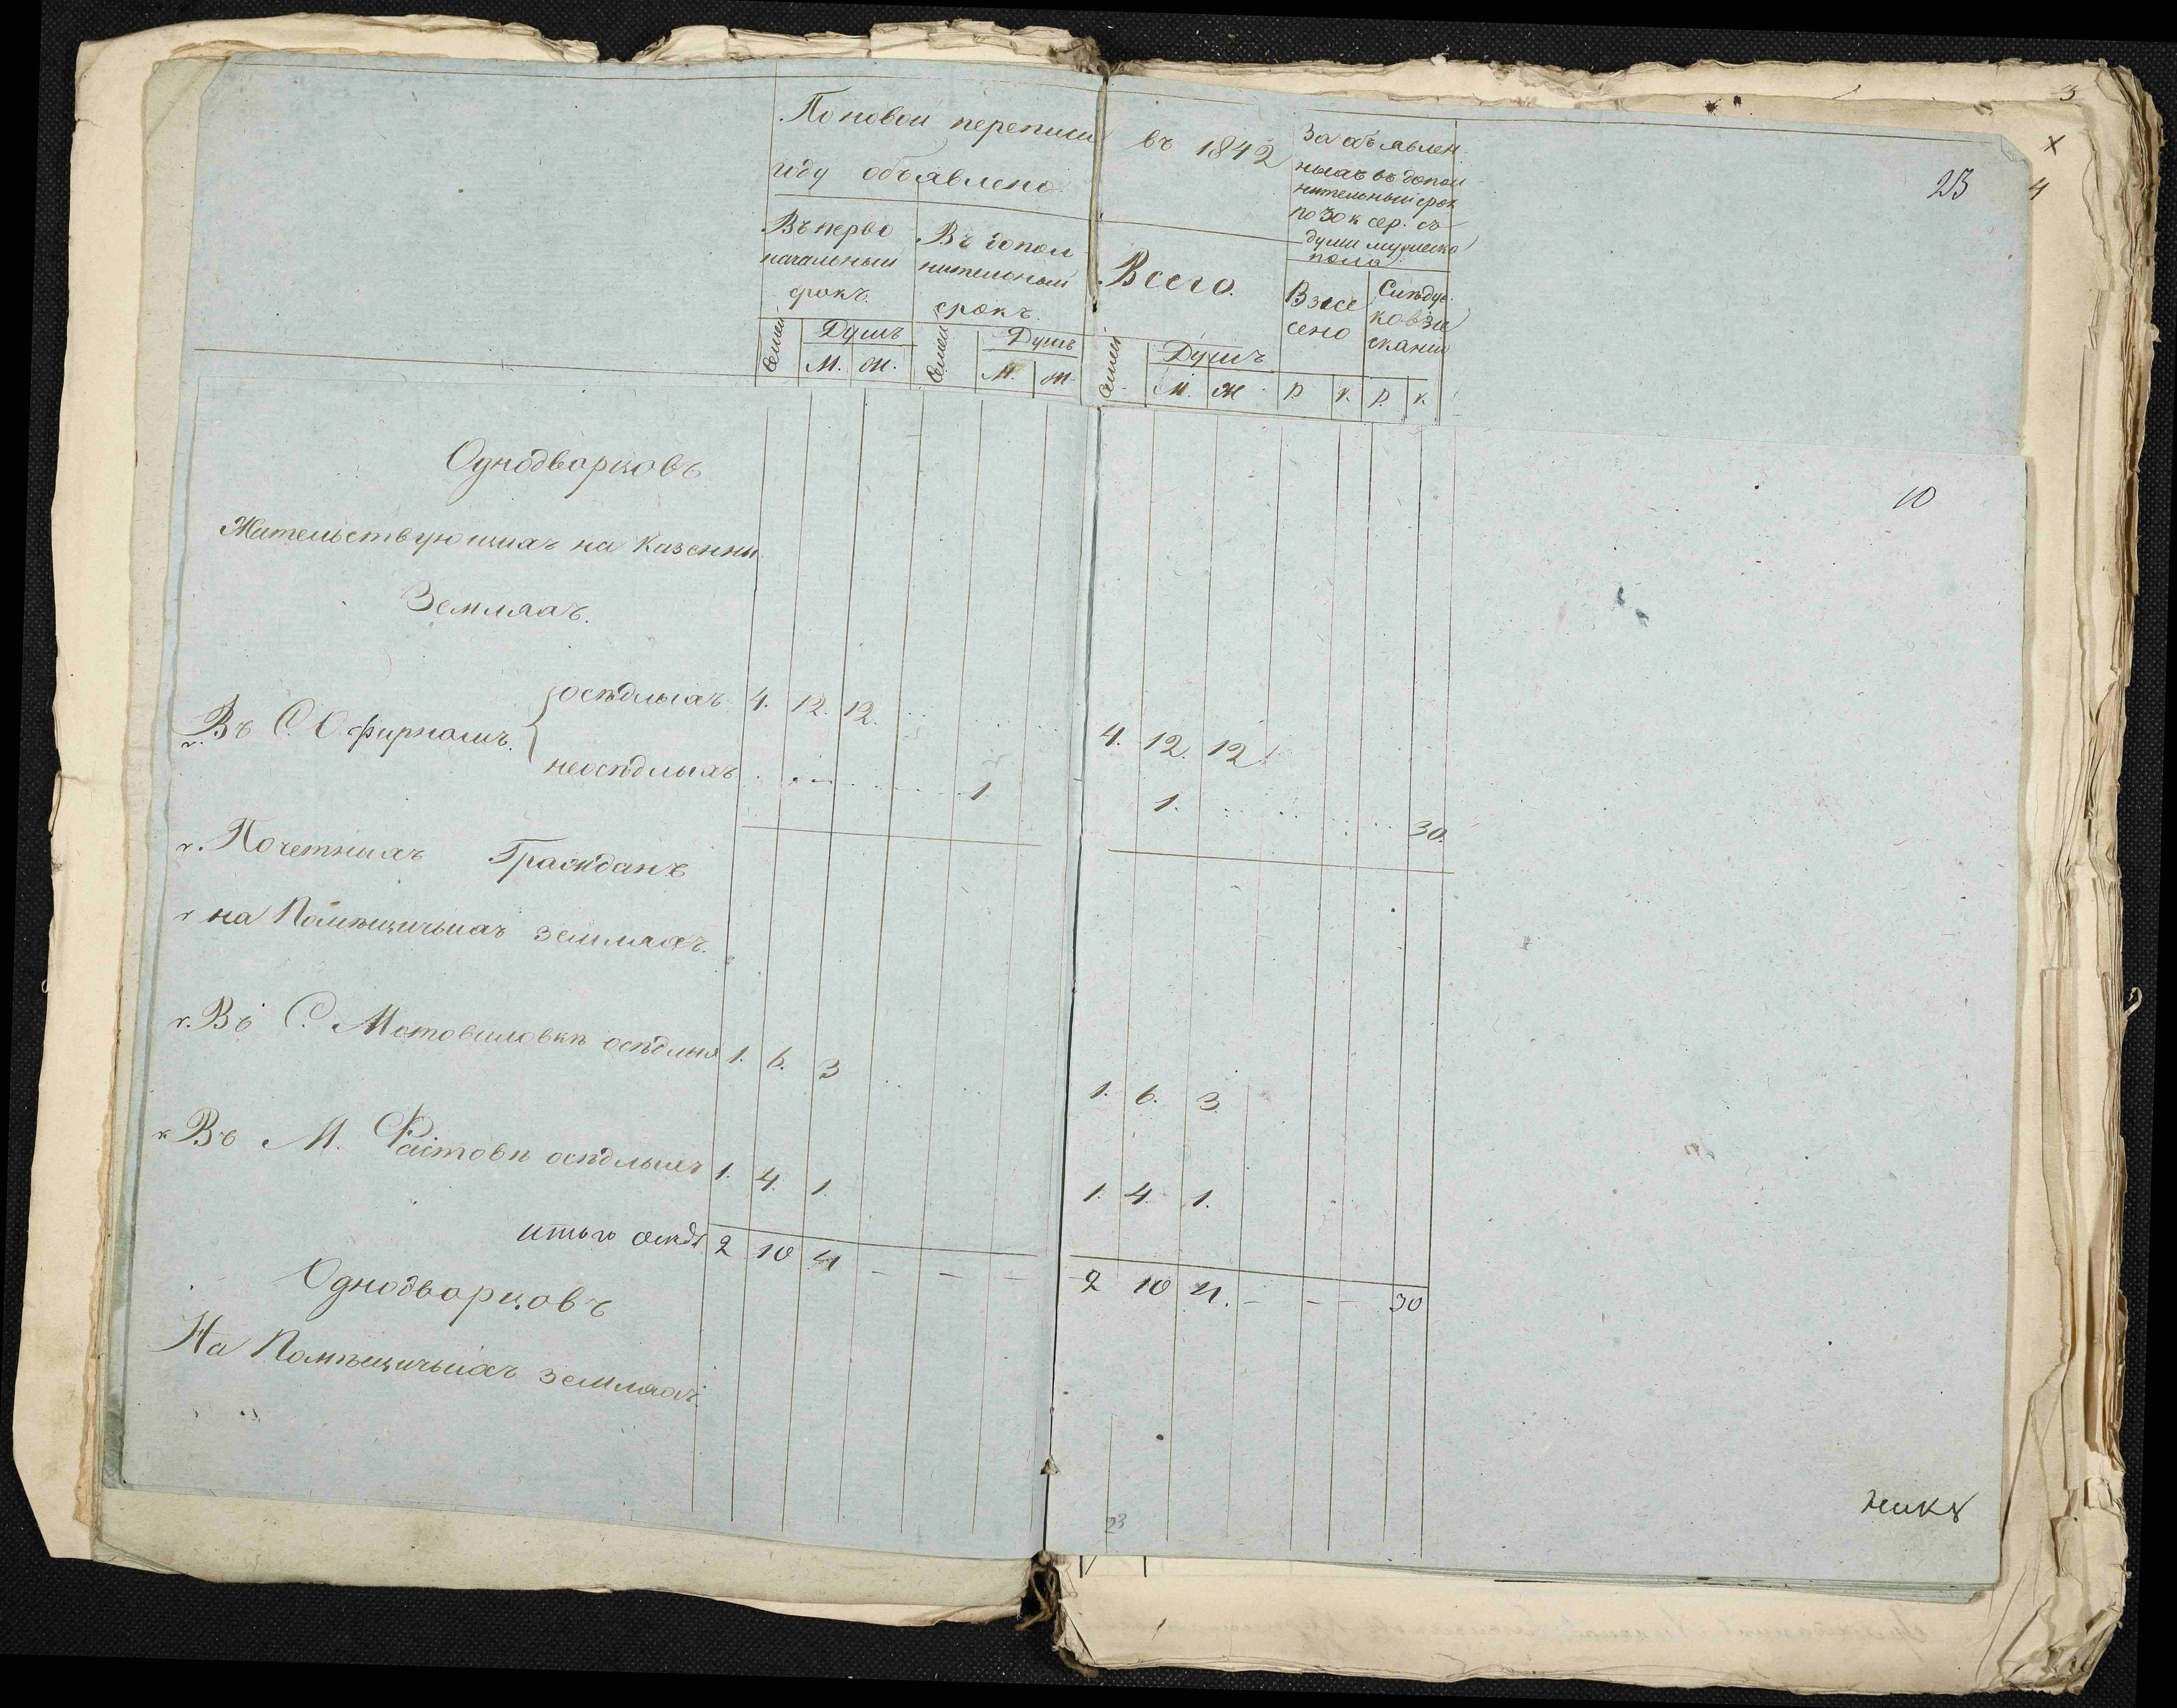 3
х
4
23
По новой переписи въ 1842
году объявлено
За объявлен
ныхъ въ допол
нительный срок
по 30 к сер. съ
души мужеска
пола
Въ перво
начальный
срокъ.
Въ допол
нительный
срокъ.
Всего.
Взне
сено
Слѣдуе
ко взы
сканию
Семей
Душъ
М. Ж.
Семей
Душъ
М. Ж.
Семей
Душъ
М. Ж
Р К. Р. К.
10
Однодворцовъ
Жительствующихъ на Казенны
Земляхъ.
Въ С. Офирномъ.
осѣдлыхъ 4. 12. 12. 4. 12. 12.
неосѣдлыхъ 1 1. 30.
Почетныхъ Гражданъ
на Помѣщичьихъ земляхъ.
Въ С. Мотовиловкѣ осѣдлых 1. 6. 3 1. 6. 3
Въ М. Фастовѣ осѣдлыхъ 1. 4. 1. 1. 4. 1.
итого осѣдл 2 10 4 – – – 2 10 4. – – – 30
Однодворцовъ
На Помѣщичьихъ земляхъ.
23